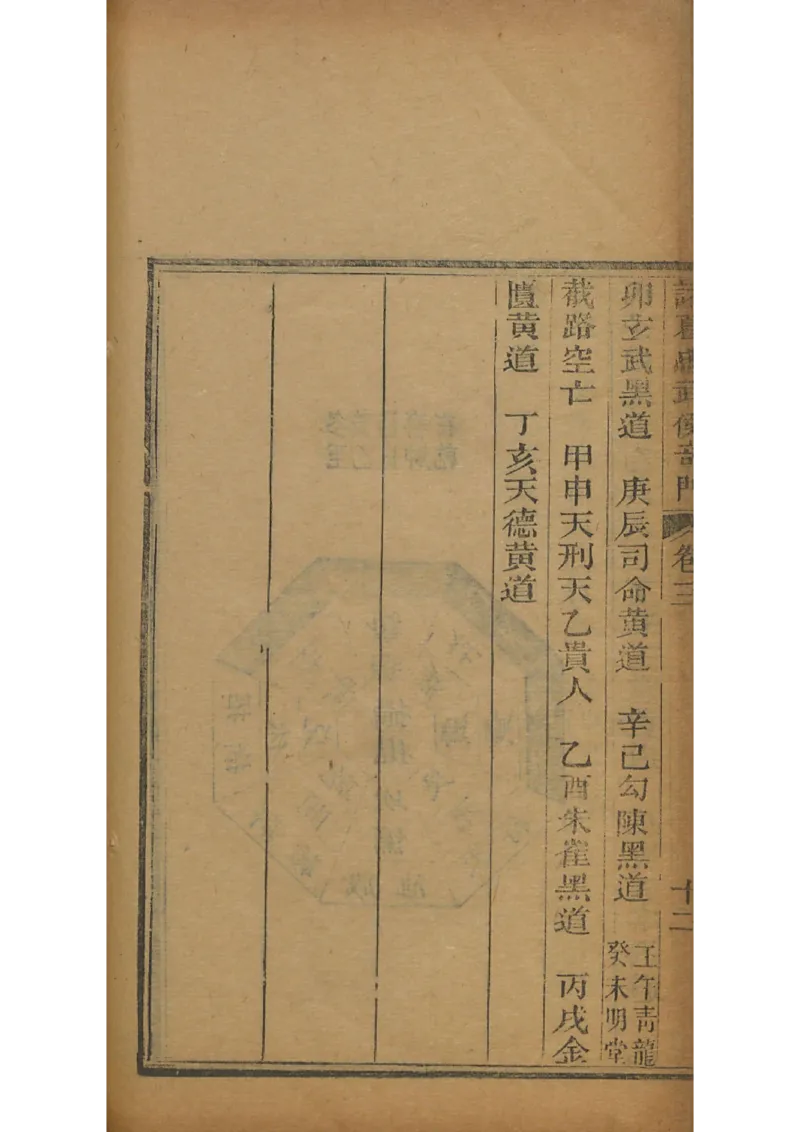 諸葛武侯奇門 卷三 十二
卯玄武黑道 庚辰司命黃道 辛已勾陳黑道 壬午青龍
癸未明堂
截路空亡 甲申天刑天乙貴人 乙酉朱雀黑道 丙戌金
匱黃道 丁亥天德黃道